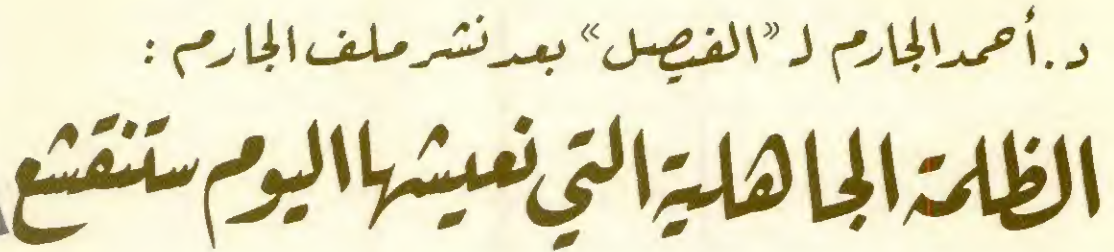 د. أحمد الجارم لـ «الفيصل» بعد نشر ملف الجارم :
الظلمة الجاهلية التي نعيشها اليوم ستنقشع